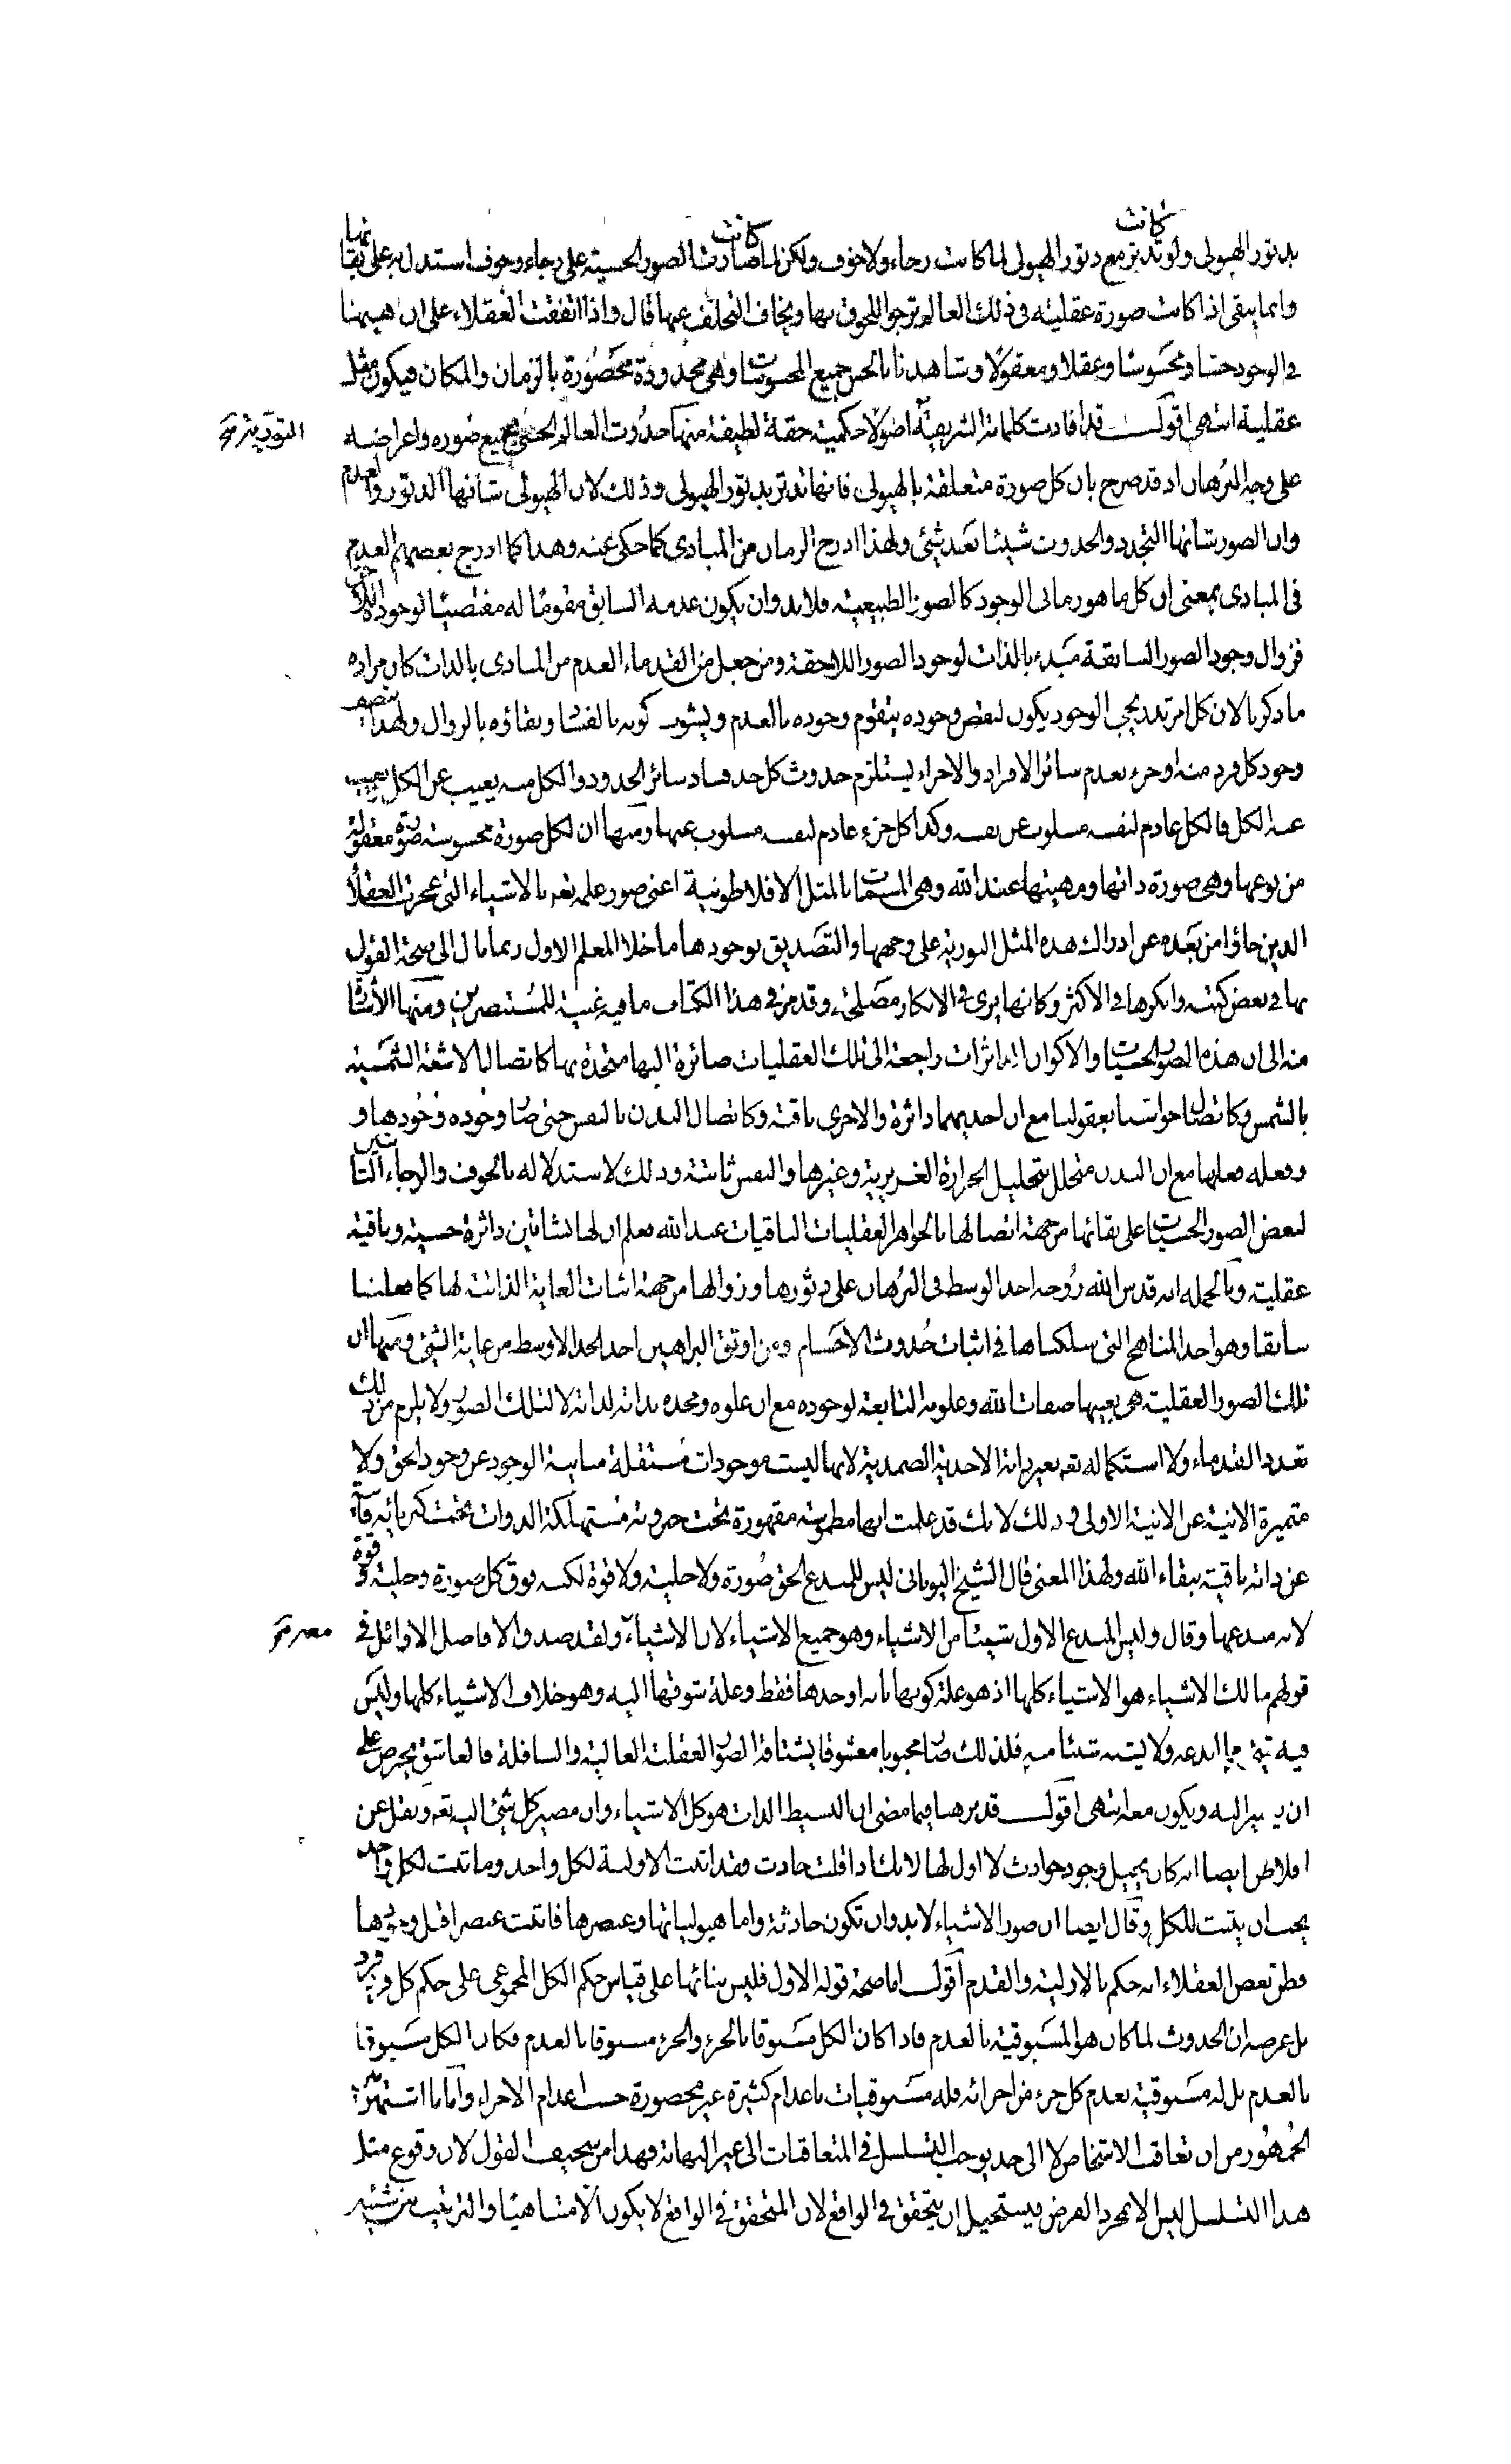 كانت كانت
بدثور الهيولى ولو تدثر مع دثور الهيولى لما كانت رجاء ولا خوف ولكن لما صارت الصور الحسية على رجاء وخوف استدل به على بقائها
وانما يبقى اذا كانت صورة عقلية فى ذلك العالم ترجو اللحوق بها ويخاف التخلف عنها قال واذا اتفقت العقلاء على ان هيهنا
فى الوجود حسا ومحسوسا وعقلا ومعقولا وشاهدنا بالحس جميع المحسوسات وهى محدودة محصورة بالزمان والمكان فيكون مثل
عقلية انتهى اقول قد افادت كلماته الشريفة اصولا حكمية حقة لطيفة منها حدوث العالم الحسى بجميع صوره واعراضه
على وجه البرهان اذ قد صرح بان كل صورة متعلقة بالهيولى فانها تدثر بدثور الهيولى وذلك لان الهيولى شانها الدثور والعدم
وان الصور شانها التجدد والحدوث شيئا بعد شئ ولهذا ادرج الزمان من المبادى كما حكى عنه وهذا كما ادرج بعضهم العدم
فى المبادى بمعنى ان كل ما هو زمانى الوجود كالصور الطبيعية فلابد وان يكون عدمه السابق مقوما له مقتضيا لوجوده اللاحق
فزوال وجود الصور السابقة مبدء بالذات لوجود الصور اللاحقة ومن جعل من القدماء العدم من المبادى بالذات كان مراده
ما ذكرنا لان كل امر تدريجى الوجود يكون وجوده يتقوم وجوده بالعدم ويشوب كونه بالفساد وبقاؤه بالزوال ولهذا
وجود كل فرد منه او جزء بعدم سائر الافراد والاجزاء ليستلزم حدوث كل حد فساد سائر الحدود والكل منه يغيب عن الكل يغيب
عنه الكل فالكل عادم لنفسه مسلوب عن نفسه وكذا كل جزء عادم لنفسه مسلوب عنها ومنها ان لكل صورة محسوسة صورة معقولة
من نوعها وهى صورة ذاتها ومهيتها عند الله وهى المسماة بالمثل الافلاطونية اعنى صور علمه تعه بالاشياء التى عجزت العقلاء
الذين جاؤا من بعده عن ادراك هذه المثل النورية على وجهها والتصديق بوجودها ما خلا المعلم الاول ربما مال الى صحة القول
بها فى بعض كتبه وانكرها فى الاكثر وكانها يرى فى الانكار مصلحة وقد مر فى هذا الكتاب ما فيه غنية للمستبصرين ومنها الاشارة
منه الى ان هذه الصور الحسيات والاكوان الداثرات راجعة الى تلك العقليات صائرة اليها متحدة بها كاتصال الاشعة الشمسية
بالشمس وكاتصال حواسنا بعقولنا مع ان احديهما داثرة والاخرى باقية وكاتصال البدن بالنفس حتى صار وجوده وجودها و
وفعله فعلها مع ان البدن متحلل بتحليل الحرارة الغريزية وغيرها والنفس ثابتة وذلك لاستدلاله بالخوف والرجاء
لبعض الصور الحسيات على بقائها من جهة اتصالها بالجواهر العقليات الباقيات عند الله فعلم ان لها نشاتين داثرة حسية وباقية
عقلية وبالجملة انه قدس الله روحه اخذ الوسط فى البرهان على دثورها وزوالها من جهة اثبات الغاية الذاتية لها كما فعلنا
سابقا وهو احد المناهج التى سلكناها فى اثبات حدوث الاجسام ومن اوثق البراهين اخذ الحد الاوسط من غاية الشئ ومنها ان
تلك الصور العقلية هى بعينها صفات الله وعلومه التابعة لوجوده مع ان علوه ومجده بذاته لذاته لا لتلك الصور ولا يلزم من ذلك
تعدد القدماء ولا استكماله تعه بغير ذاته الاحدية الصمدية لانها ليست موجودات مستقلة مباينة الوجود عن وجود الحق ولا
متميزة الانية عن الانية الاولى وذلك لانك قد علمت انها مطموسة مقهورة تحت جبروته مستهلكة الذوات تحت كبريائه
عن ذاته باقية ببقاء الله ولهذا المعنى قال الشيخ اليونانى ليس للمبدع الحق صورة ولا حلية ولا قوة لكنه فوق كل صورة وحلية وقوة
لانه مبدعها وقال وليس المبدع الاول شيئا من الاشياء وهو جميع الاشياء لان الاشياء ولقد صدق الافاضل الاوائل فى
قولهم مالك الاشياء هو الاشياء كلها اذ هو علة كونها بانه اوجدها فقط وعلة شوقها اليه وهو خلاف الاشياء كلها وليس
فيه شئ مما ابدعه ولا يشبه شيئا منه فلذلك صار محبوبا معشوقا يشتاقه الصور العقلية العالية والسافلة فالعاشق يحرص على
ان يصير اليه ويكون معه انتهى اقول قد برهنا فيما مضى ان البسيط الذات هو كل الاشياء وان مصير كل شئ اليه تعه ونقل عن
افلاطن ايضا انه كان يحيل وجود حوادث لا اول لها لانك اذا قلت حادث فقد اثبت الاولية لكل واحد وما ثبت لكل واحد
يجب ان يثبت للكل وقال ايضا ان صور الاشياء لابد وان تكون حادثة واما هيولياتها وعنصرها فاثبت عنصرا قبل وجودها
فظن بعض العقلاء انه حكم بالازلية والقدم اقول اما صحة قوله الاول فليس بنائها على قياس حكم الكل المجموعى على حكم كل فرد فرد
بل غرضه ان الحدوث لما كان هو المسبوقية بالعدم فاذا كان الكل مسبوقا بالجزء والجزء مسبوقا بالعدم فكان الكل مسبوقا
بالعدم بل له مسبوقية بعدم كل جزء من اجزائه فله مسبوقيات باعدام كثيرة غير محصورة حسب اعدام الاجزاء واما ما اشتهر
الجمهور من ان تعاقب الاشخاص لا الى حد يوجب التسلسل فى المتعاقبات الى غير النهاية فهذا من سخيف القول لان وقوع مثل
هذا التسلسل ليس الا بمجرد الفرض ويستحيل ان يتحقق فى الواقع لان المتحقق فى الواقع لا يكون الا متناهيا والترتيب بين شيئين